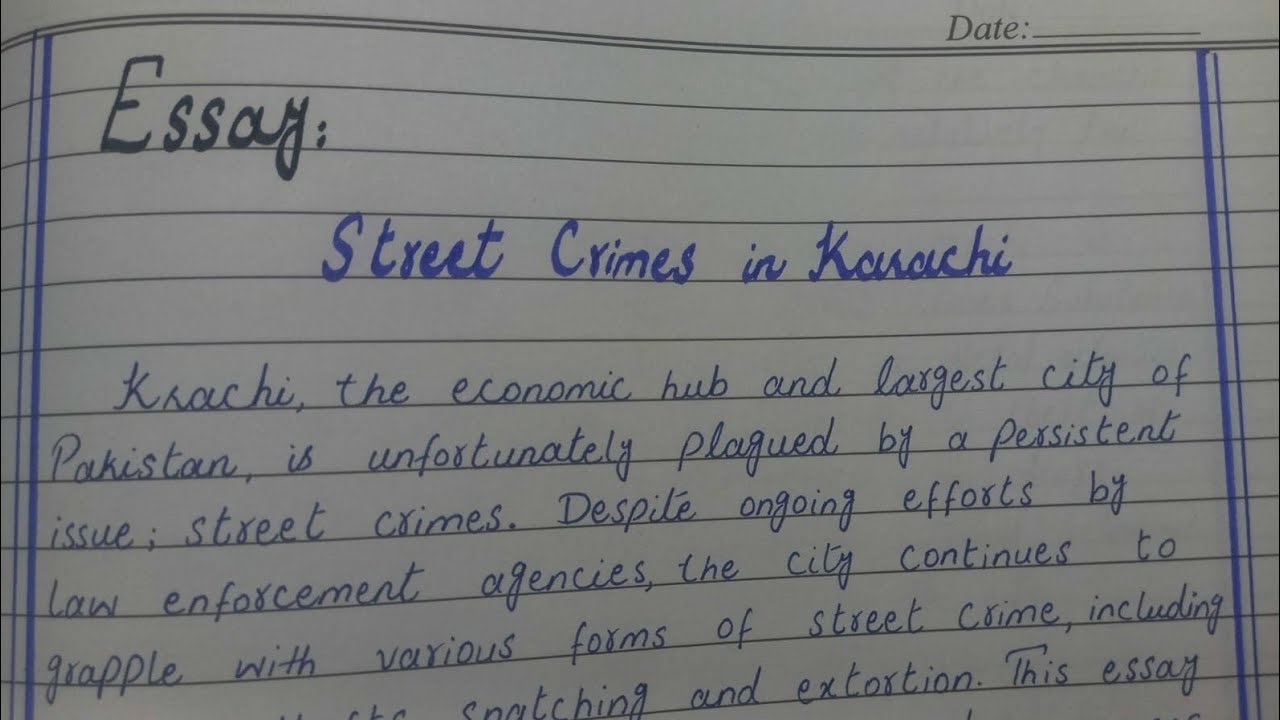 Date:
Essay:
Street Crimes in Karachi
Krachi, the economic hub and largest city of
Pakistan, is unfortunately plagued by a persistent
issue; street crimes. Despite ongoing efforts by
law enforcement agencies, the city continues to
grapple with various forms of street crime, including
snatching and extortion. This essay